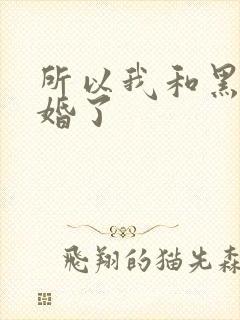 所以我和黑
婚了
飛翔的猫先森